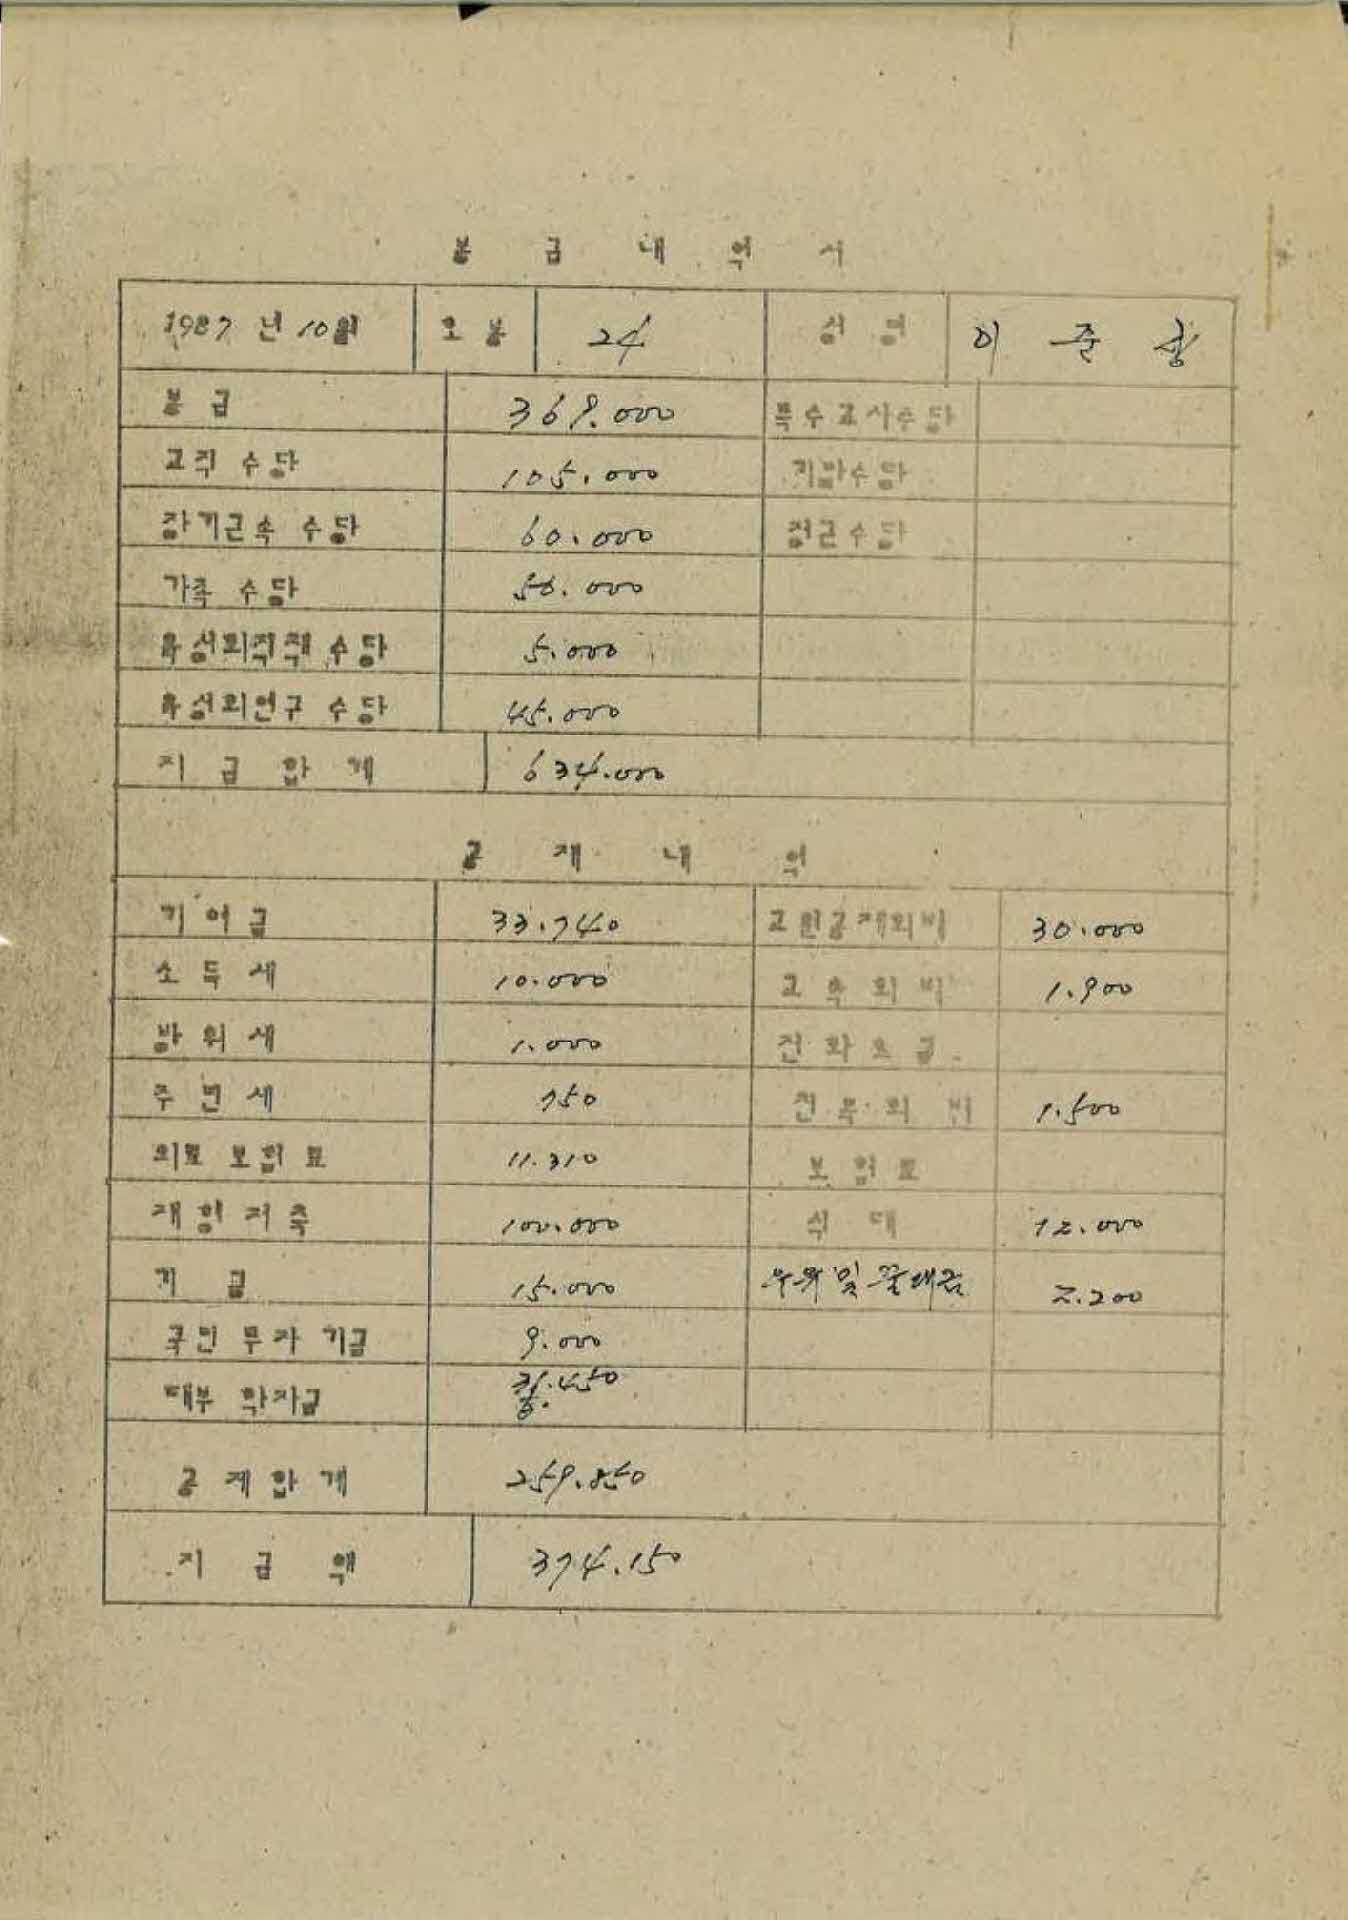 봉 급 내 역 서
1987 년 10월 호 봉 24 성 명 이 준
봉 급 369.000 특수교사수당
교직 수당 105.000 수당
장기근속 수당 60.000 정근수당
가족 수당 50.000
육성회직책 수당 5.000
육성회연구 수당 45.000
지 급 합 계 634.000
공 제 내 역
기 여 금 33.740 교원공제회비 30.000
소 득 세 10.000 교 육 회 비 1.900
방 위 세 1.000 전 화 요 금
주 민 세 750 친 목 회 비 1.500
의료 보험 료 11.310 보 험 료
재 형 저 축 100.000 식 대 12.000
기 금 15.000 우유 및 대금 2.200
국민 투자 기금 9.000
대부 학자금 .450
공 제 합 계 259.850
지 급 액 374.150